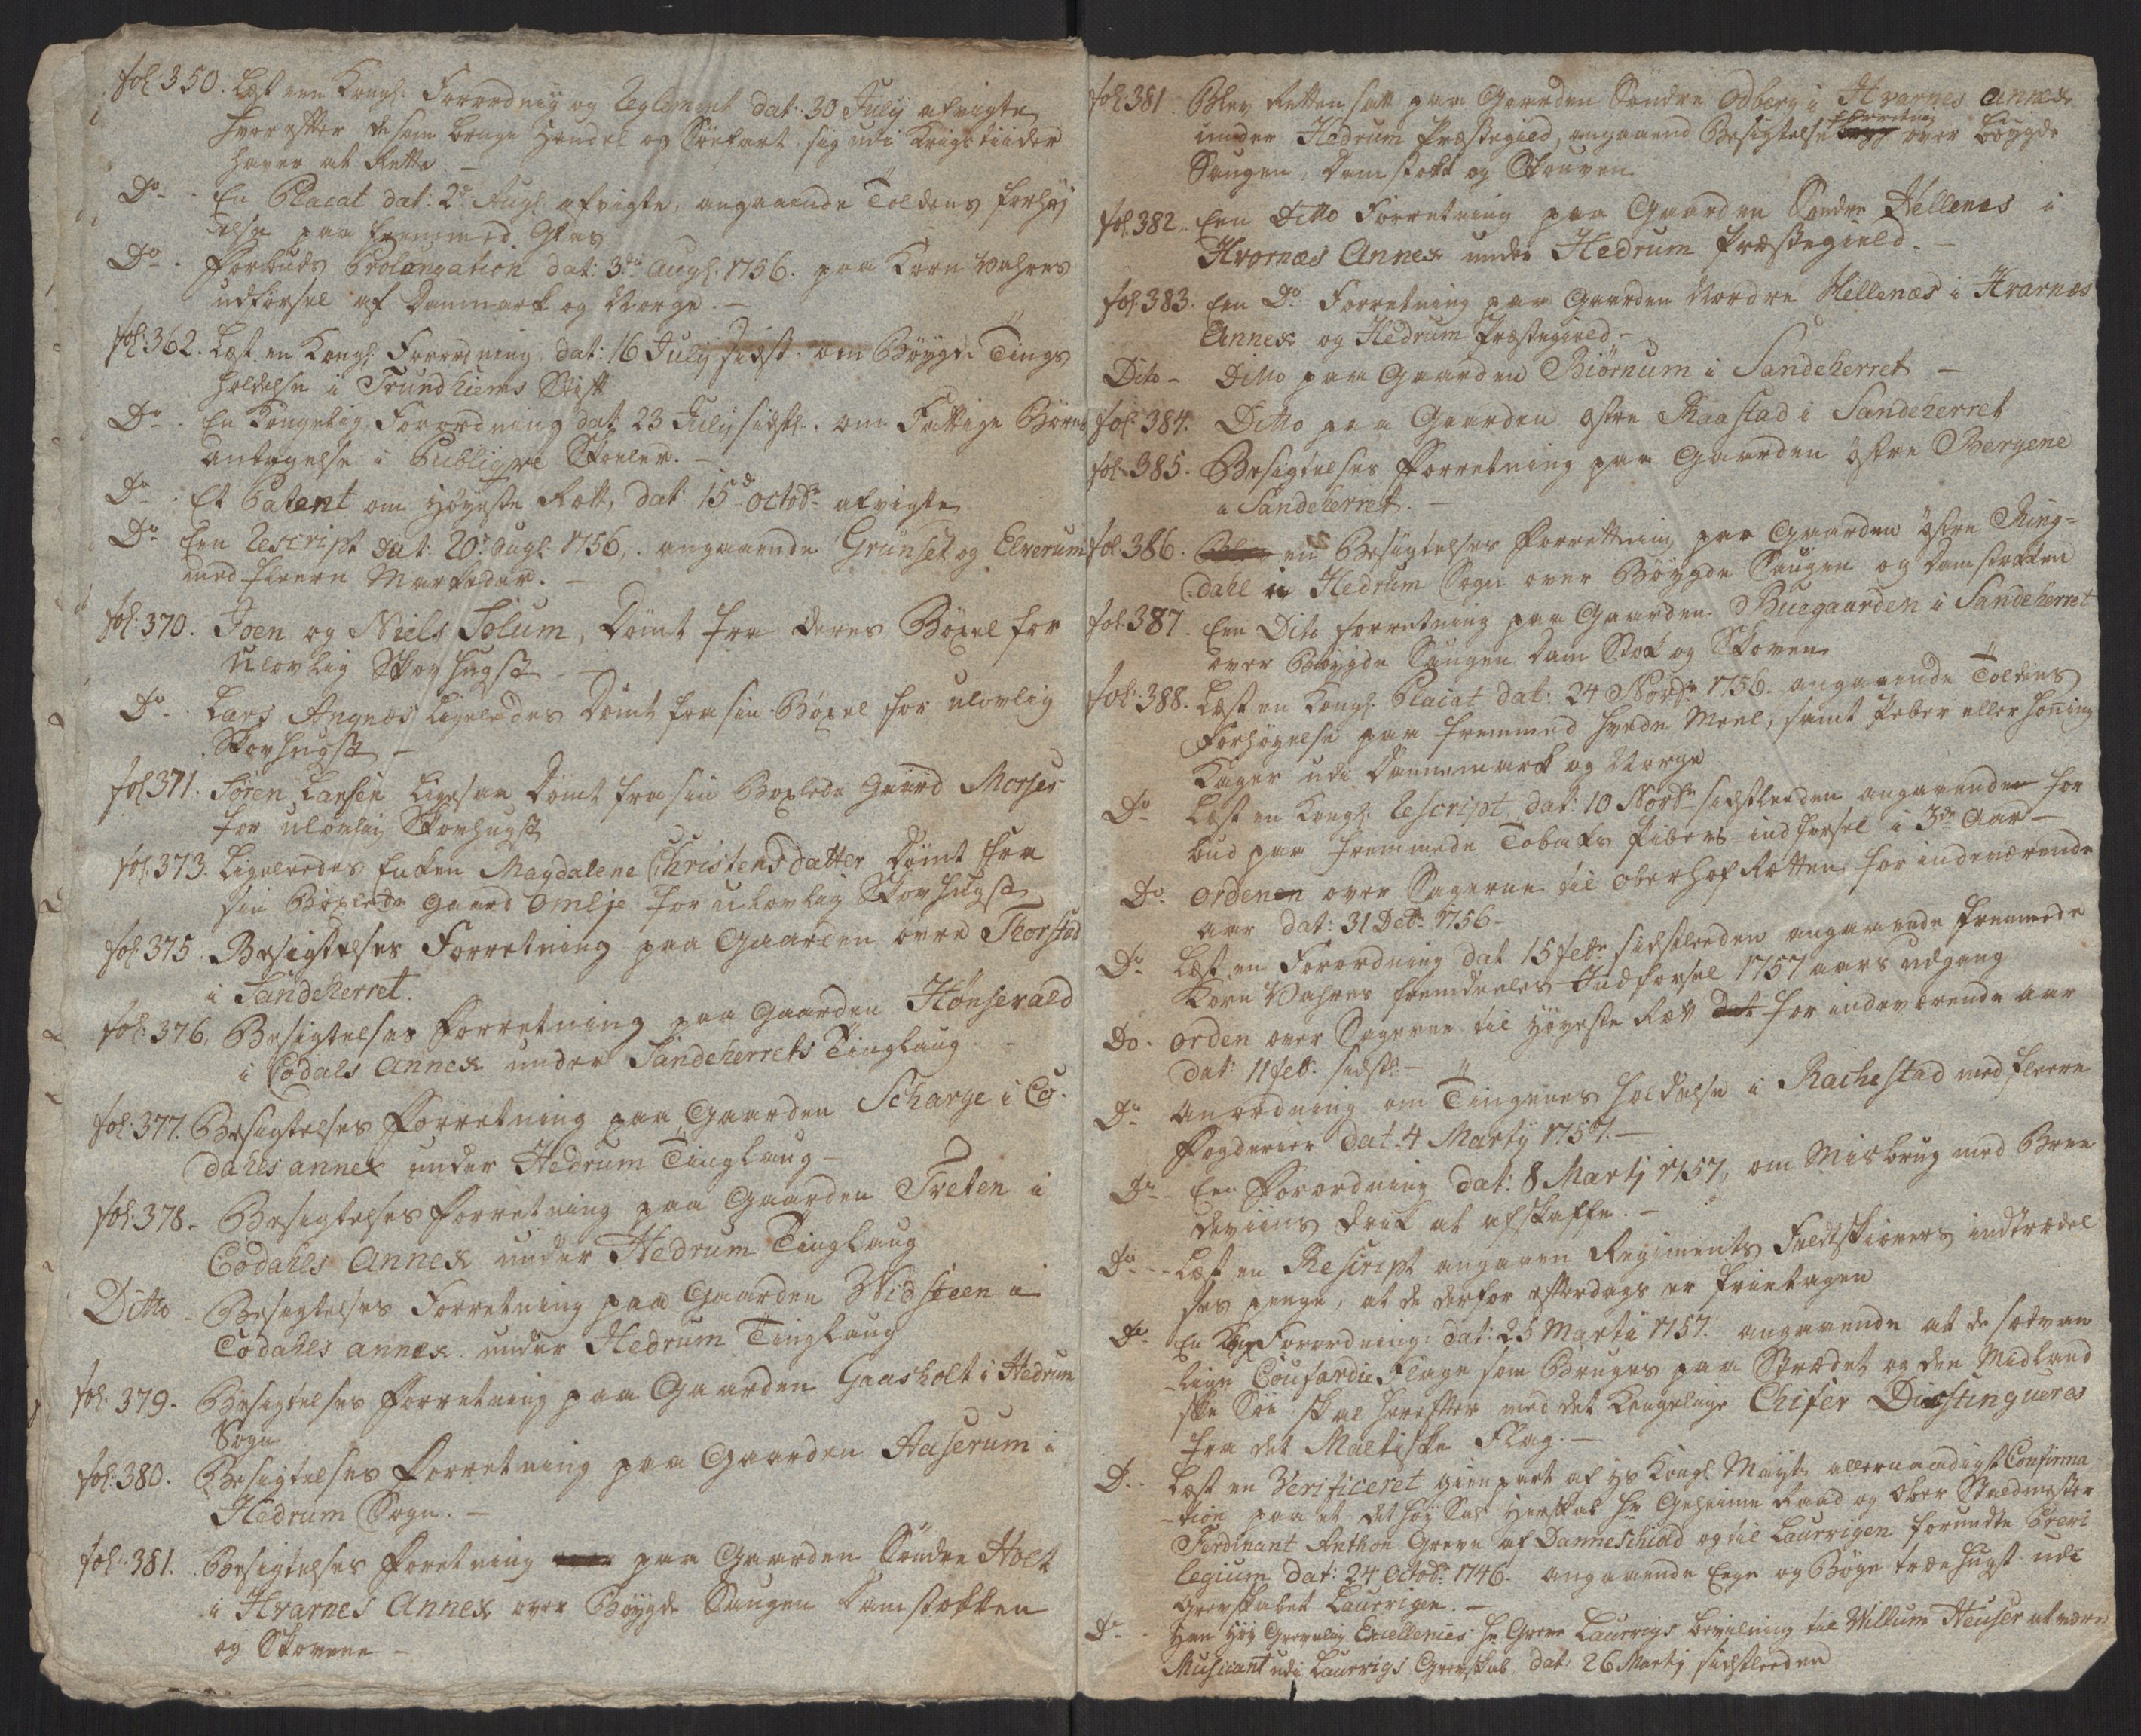 fol: 350. Læst een Kongl: Forordning og Reglement dat: 30 July afvigte
hvor efter de som bruge Handel og Söefart sig udi Krigstiider
haver at Rette. –
Do – En Placat dat: 2de Augl: afvigte, angaaende Toldens forhöj
else paa fremmed Glas
Do – Forbuds Prolongation dat: 3die Augl: 1756. paa Korn Vahres
udförsel af Danmark og Norge. –
fol: 362. Læst en Kongl: Forordning dat: 16 July sidst. om Böygde Tings
holdelse i Trundhiems Stift
Do – En Kongelig Forordning dat 23 July sidstl. om Fattige Börns
antagelse i Publiqve Skoeler. –
Do – Et Patent om Höyeste Rætt, dat 15de Octobr afvigte
Do – Een Rescript dat: 20: Augl: 1756, angaaende Grunset og Elverum
med fleere Markeder. –
fol: 370. Joen og Niels Solum, Dömt fra deres Böxel for
Ulovlig Skovhugst –
Do – Lars Angnæs ligeledes Dömt fra sin Böxel for ulovlig
Skovhugst –
fol 371. Sören Larsen ligesaa Dömt fra sin Boxlede Gaard
for ulovlig Skovhugst
fol: 373. Ligeleedes Enken Magdalene Christensdatter Dömt fra
sin Böxlede Gaard Omlje for ulovlig Skovhugst
fol: 375. Besigtelses Forretning paa Gaarden övre Thorstad
i Sandeherret.
fol: 376. Besigtelses Forretning paa Gaarden Hönsevald
i Codals Annex under Sandeherrets Tinglaug. –
fol: 377. Besigtelses Forretning paa Gaarden Scharge i Co-
dahls annex under Hedrum Tinglaug –
fol: 378 – Besigtelses Forretning paa Gaarden Treten i
Codahls Annex under Hedrum Tinglaug
Ditto – Besigtelses Forretning paa Gaarden Widsteen i
Codahls annex under Hedrum Tinglaug
fol: 379 – Besigtelses Forretning paa Gaarden Gaasholt i Hedrum
Sogn
fol: 380. Besigtelses Forretning paa Gaarden Aaserum i
Hedrum Sogn. –
fol: 381. Besigtelses Foretning paa Gaarden Söndre Holt
i Hvarnes Annex over Böygde Saugen Damstokken
og Skovene –
fol: 381 Blev Retten satt paa Gaarden Söndre Odberg i Hvarnes Annex
under Hedrum Præstegield, angaaend Besigtelse forretning over böygde
Saugen, Damstokk og Skouven
fol: 382. Een Ditto Forretning paa Gaarden Sondre Hellenes i
Hvornæs Annex under Hedrum Præstegield. –
fol: 383. Een Do Forretning paa Gaarden Nordre Hellenæs i Hvarnæs
Annex og Hedrum Præstegield –
Dito – Ditto paa Gaarden Biörnum i Sandeherret –
fol: 384. Ditto paa Gaarden östre Raastad i Sandeherret
fol: 385. Besigtelses Forretning paa Gaarden östre Bergene
i Sandeherret. –
fol: 386. en Besigtelses Forrettning paa Gaarden östre Ring=
dahl i Hedrum Sogn over Böygde Saugen og Damstokken
fol: 387. Een Dito forretning paa Gaarden Buegaarden i Sandeherret
over Böygde Saugen Dam Stok og Skoven
fol: 388. Læst en Kongl: Placat dat: 24 Novbr 1756. angaaende Toldens
Forhöyelse paa fremmed Hvede Meel, samt Peber eller Honing
Kager udi Dannemark og Norge
Do Læst en Kongl: Rescript, dat: 10 Novbr sidstleeden angaaende for
bud paa fremmede Tobaks Pibers indförsel i 3de Aar –
Do Ordenen over Sagerne til Oberhof Rætten for indeværende
aar dat: 31 Decbr 1756 –
Do Læst en Forordning dat 15 febr sidstleeden angaaende fremmede
Korn Vahres fremdeeles Indförsel 1757 aars udgang
Do – Orden over Sagerne til Höyeste Ræt for indeværende aar
dat: 11 feb: sidstl: –
Do Anordning om Tingenes holdelse i Rachestad med fleere
Fogderier dat. 4 Marty 1757. –
Do – Een Forordning dat: 8 Marty 1757, om Misbrug med Bren
deviins Drik at afskaffe. –
Do – Læst en Rescript angaaen Regiments Feldtskiærers indtrædel
ses penge, at de derfor efterdags er frietagen
Do En Kgl Forordning: dat: 25 Marti 1757. angaaende at de sædvan
-lige Coufardie Flage som Bruges paa Strædet og den Midland
ske Söe skal herefter med det Kongelige Chifer Distingueres
fra det Maltiske Flag. –
D. – Læst en Verificeret gienpart af Hs Kongl: Mayts allernaadigst Confirma
-tion paa et det höy Sal Herskab Hr Geheime Raad og Ober Staldmester
Ferdinant Anthon Greve af Danneschiold og til Laurvigen forundte Previ
legium dat: 24 Octobr 1746. angaaende Eege og Böge træehugst udi
Grevskabet Laurvigen. –
Do Hans Höy Grevelig Excellences Hr Greve Laurvigs bevilning til Willum Heuser at være
Musicant udi Laurvigs Grevskab dat: 26 Marty sidstleeden